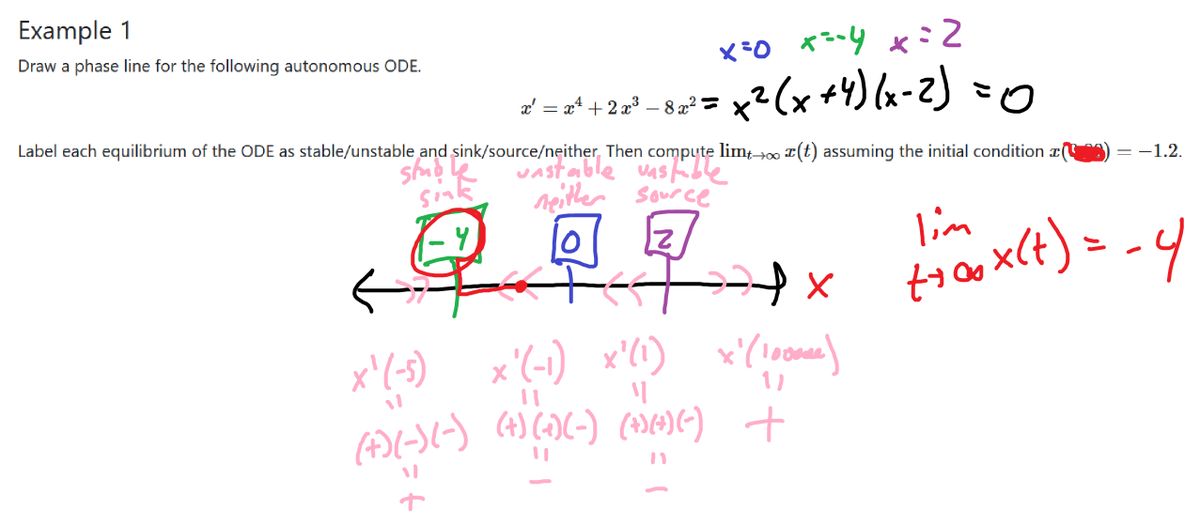 Example 1
x=0 x=-4 x=2
Draw a phase line for the following autonomous ODE.
x′ = x⁴ + 2x³ − 8x² = x²(x+4)(x-2) = 0
Label each equilibrium of the ODE as stable/unstable and sink/source/neither. Then compute limₜ→∞ x(t) assuming the initial condition x( ) = −1.2.
stable unstable unstable
sink neither source
-4 0 2
lim x(t) = -4
t→∞
x
x'(-5) x'(-1) x'(1) x'(10000)
= = = =
(+)(-)(-) (+)(+)(-) (+)(+)(-) +
= = =
+ - -